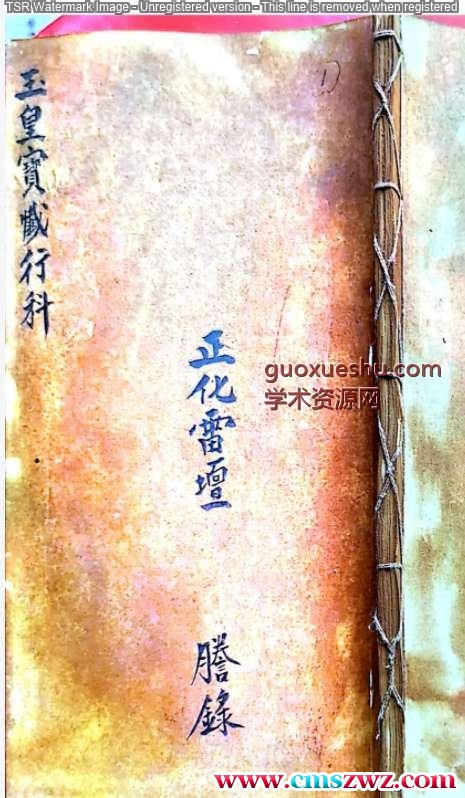 TSR Watermark Image - Unregistered version - This line is removed when registered
1)
玉皇寶懺行科
正化雷壇
guoxueshu.com
学术资源网
謄錄
www.cmszwz.com